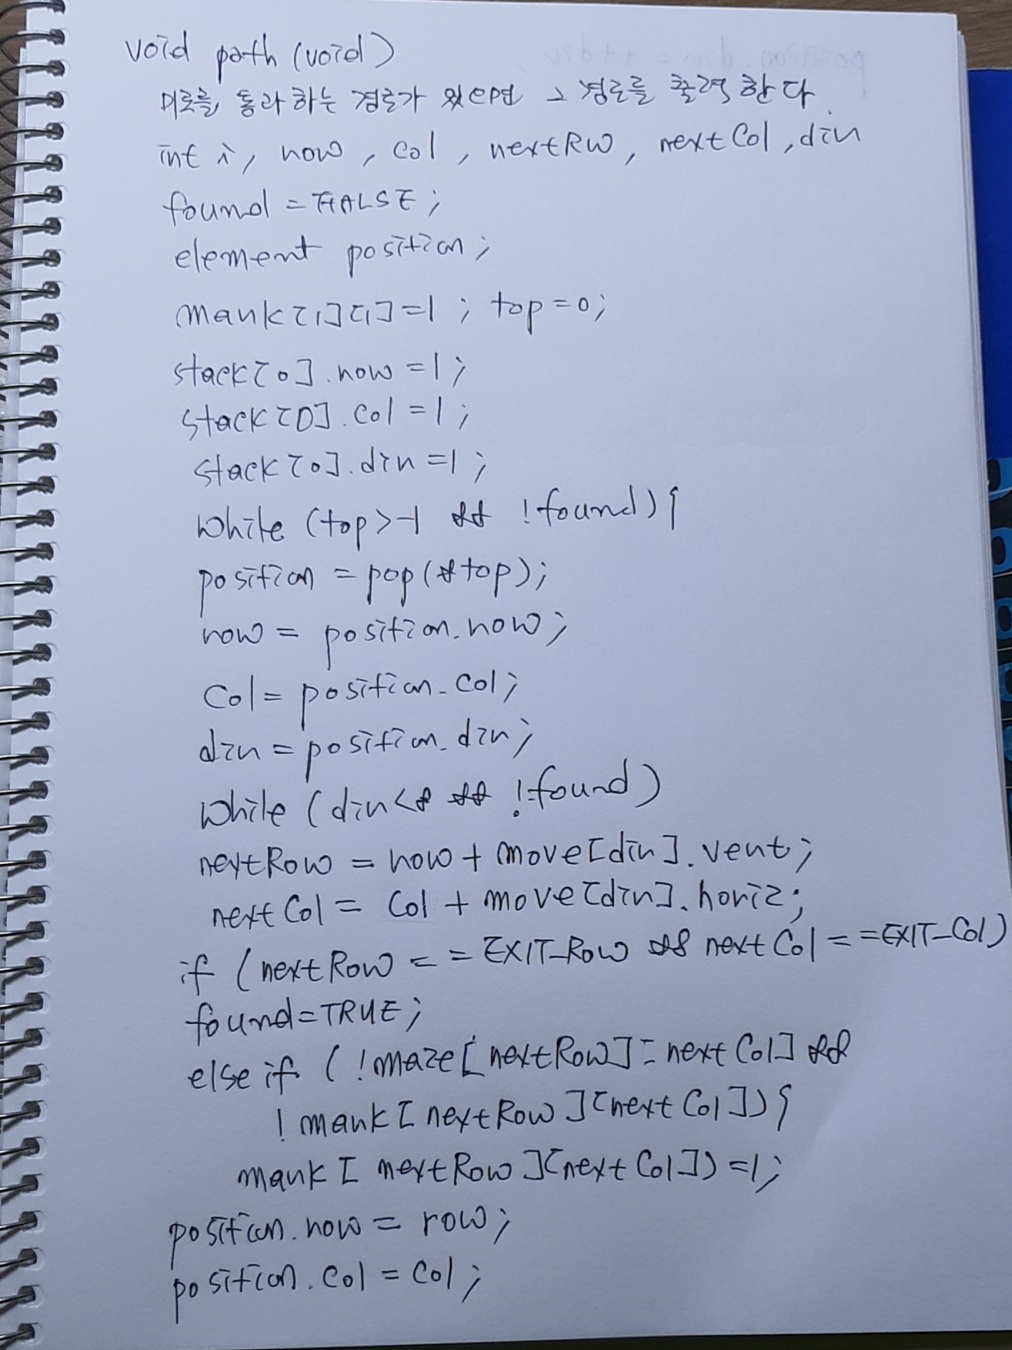 void path (void)
미로를 통과 하는 경로가 있으면 그 경로를 출력 한다.
int i, row, col, nextRow, nextCol, dir
found = FALSE;
element position;
mark[1][1]=1; top=0;
stack[0].row=1;
stack[0].col=1;
stack[0].dir=1;
while (top>-1 && !found){
position = pop(&top);
row = position.row;
col = position.col;
dir = position.dir;
while (dir<8 && !found)
nextRow = row + move[dir].vert;
nextCol = col + move[dir].horiz;
if (nextRow == EXIT_Row && nextCol == EXIT_Col)
found=TRUE;
else if (!maze[nextRow][nextCol] &&
! mark[nextRow][nextCol]){
mark[nextRow][nextCol])=1;
position.row = row;
position.col = col;